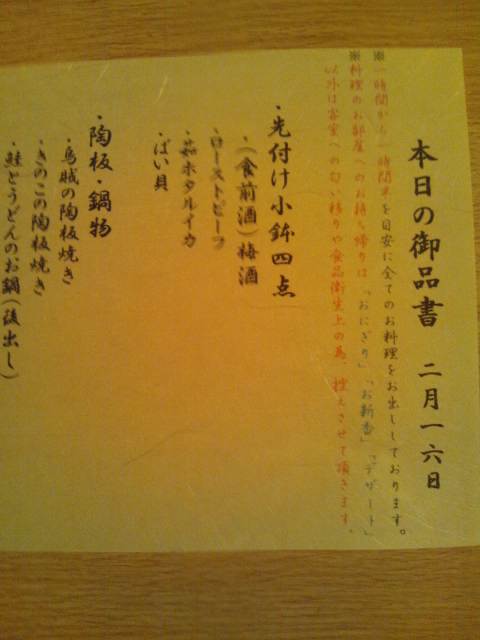 本日の御品書 二月一六日
※一時間から一時間半を目安に全てのお料理をお出ししております。
※料理のお部屋へのお持ち帰りは「おにぎり」「お新香」「デザート」
以外は客室への匂い移りや食品衛生上の為、控えさせて頂きます。
・先付け小鉢四点
・(食前酒)梅酒
・ローストビーフ
・茹ホタルイカ
・ばい貝
・陶板 鍋物
・烏賊の陶板焼き
・きのこの陶板焼き
・鮭とうどんのお鍋(後出し)